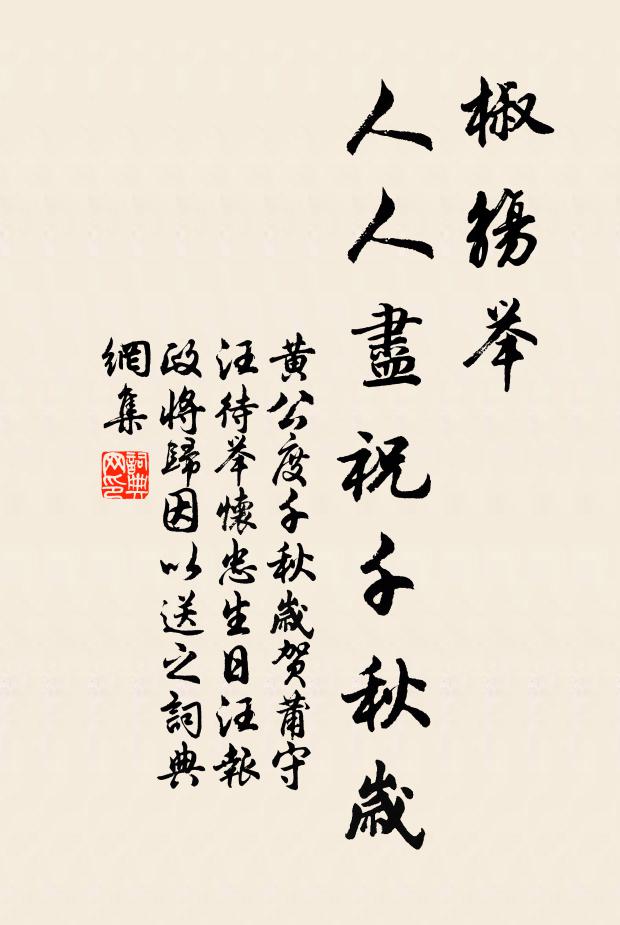 椒觴举
人人盡祝千秋歲
黄公度千秋歲贺莆守
汪待举懷忠生日汪報
政將歸因以送之詞典
網集
詞典网印